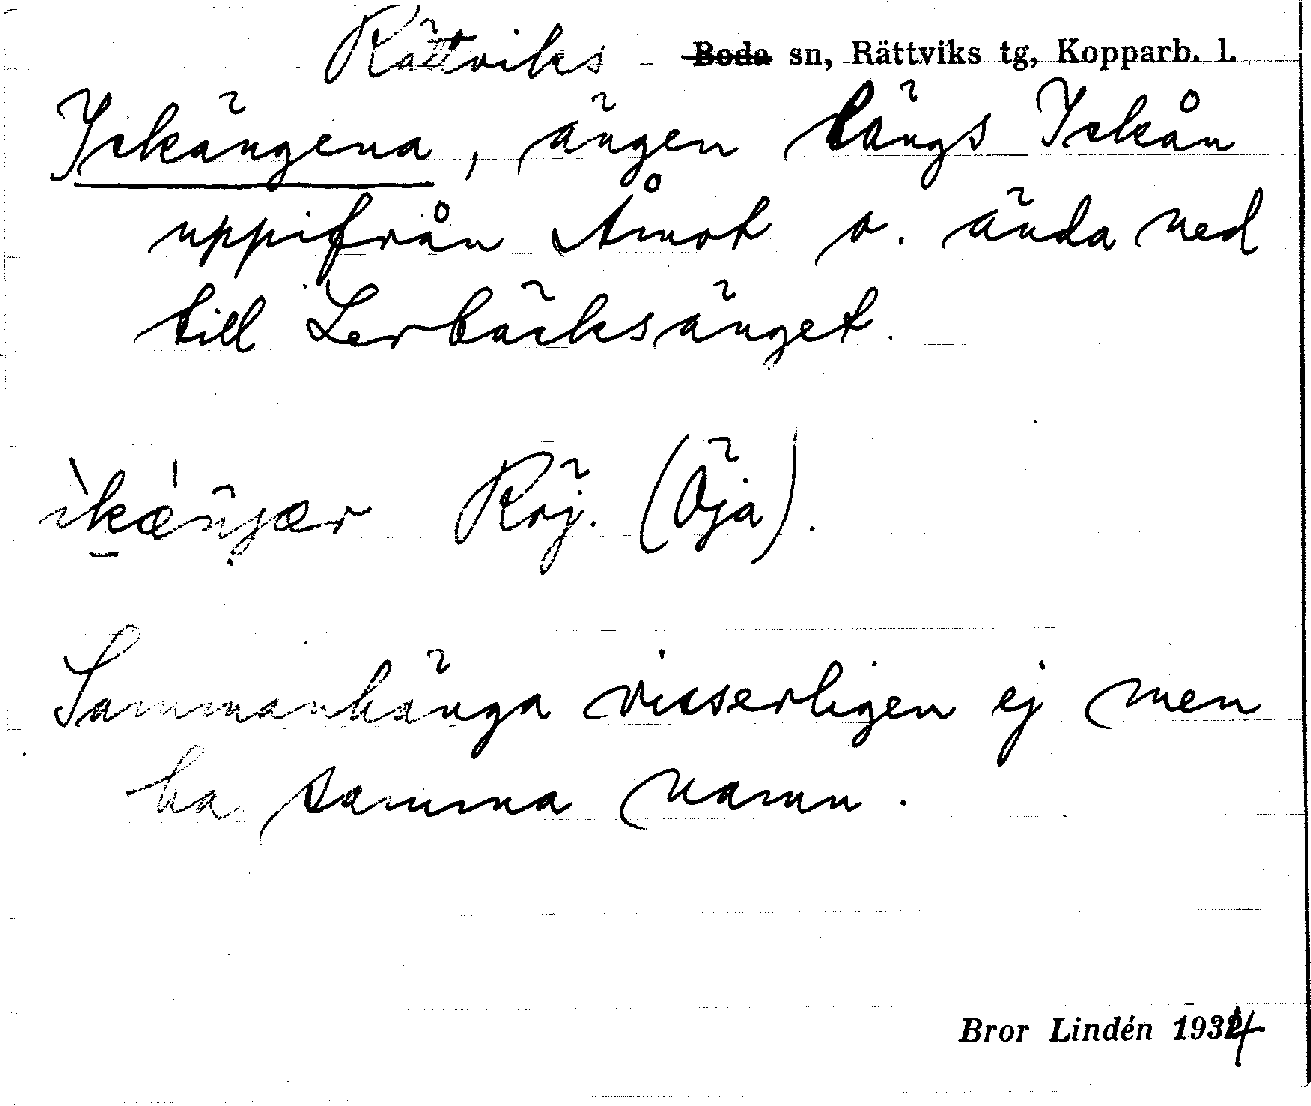 Rättviks Boda sn, Rättviks tg, Kopparb. l.
Ickängena, ängen längs Ickån
uppifrån Åmot o. ända ned
till Lerbäcksänget.
Röj. (Öja).
Sammanhänga visserligen ej men
ha samma namn.
Bror Lindén 1934